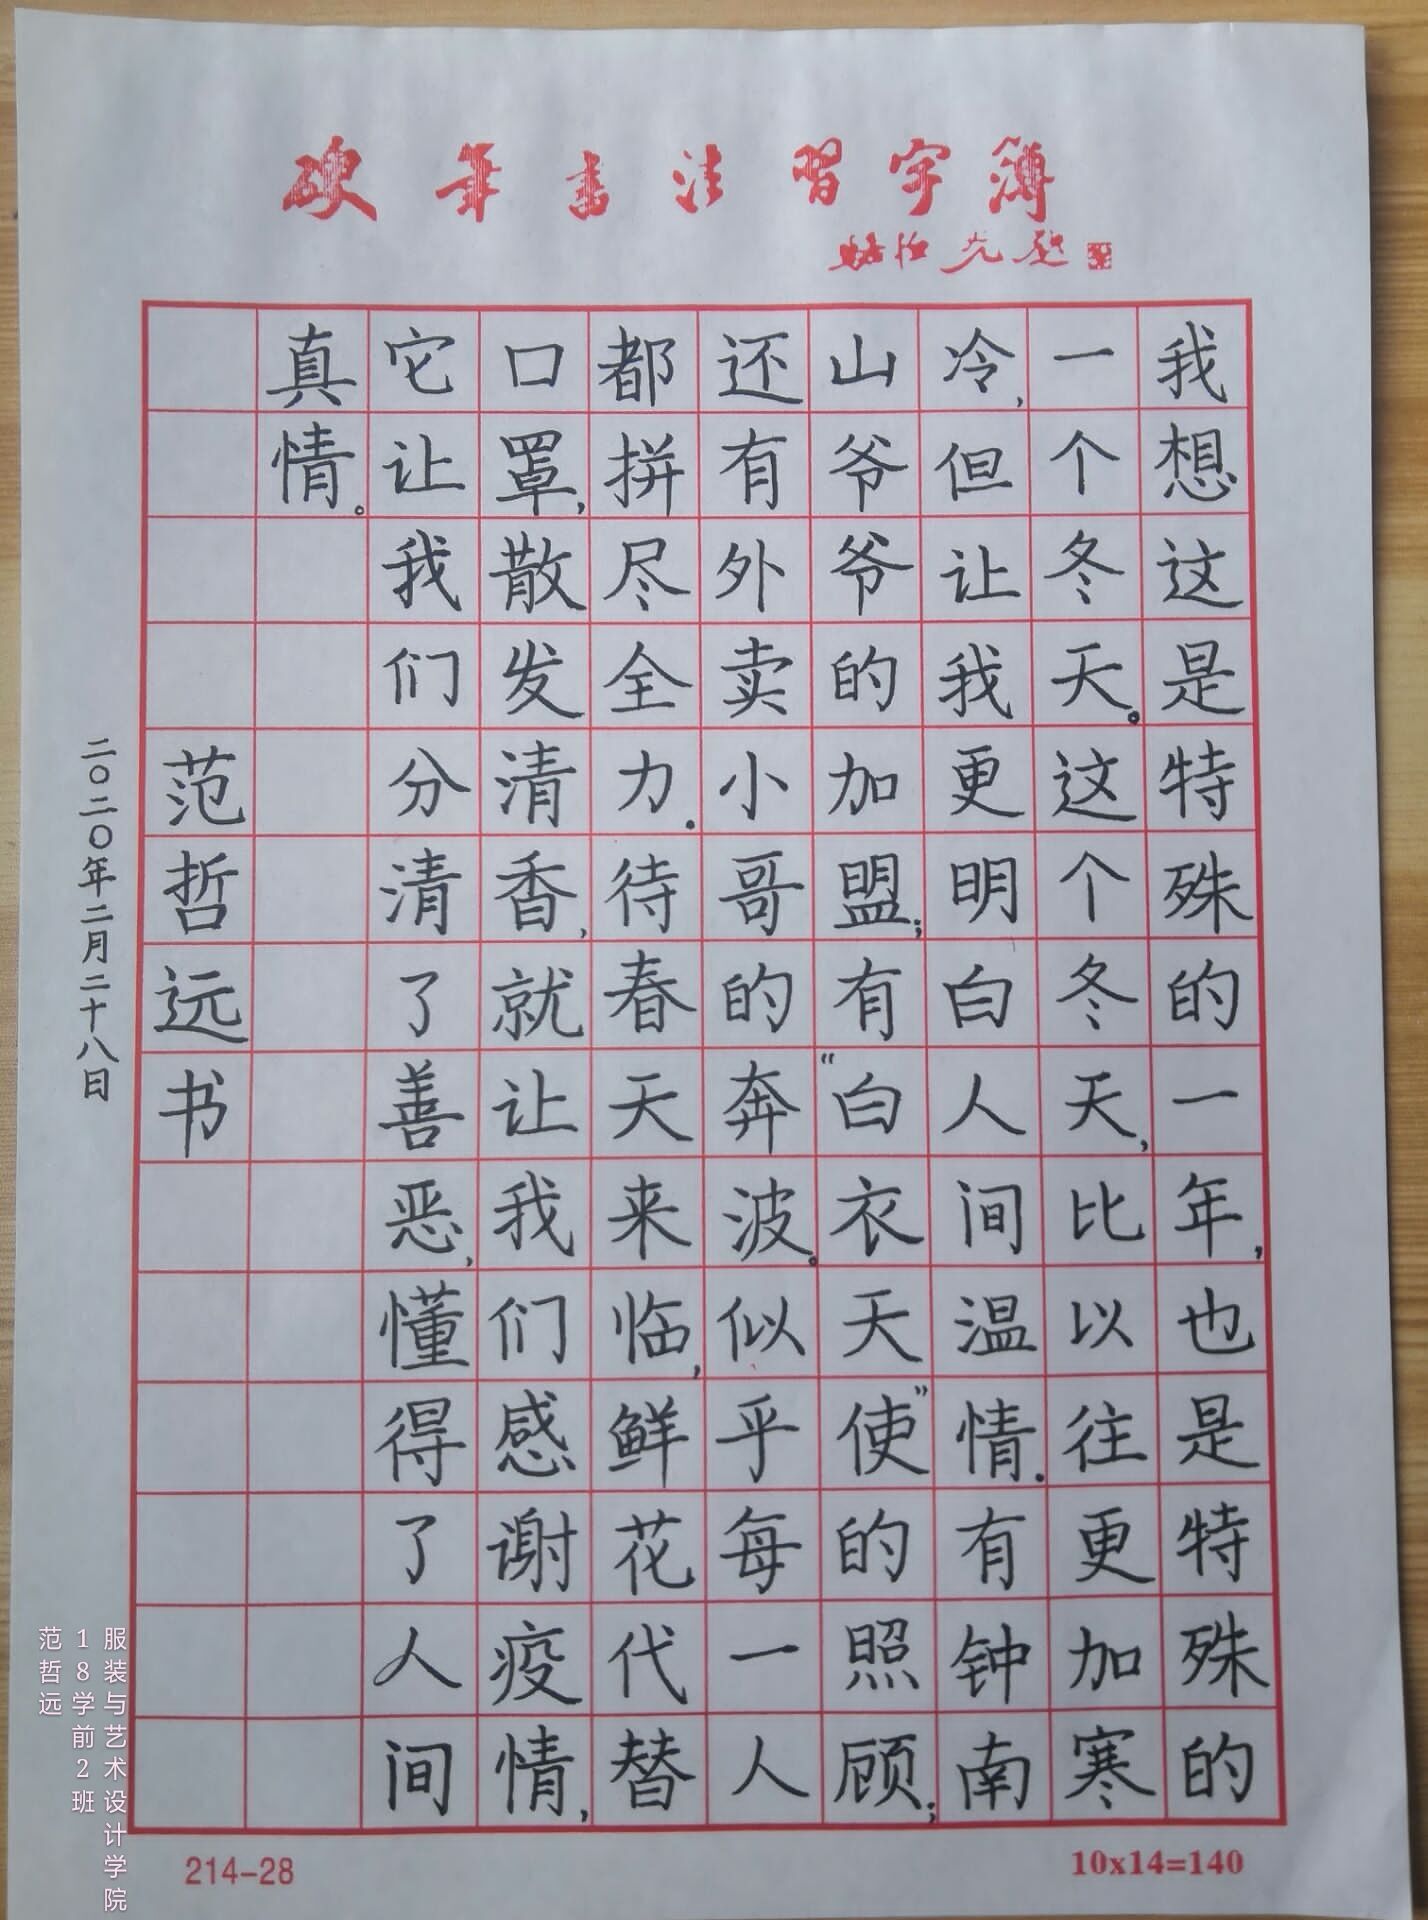 硬笔书法习字簿
我想这是特殊的一年,也是特殊的
一个冬天。这个冬天,比以往更加寒
冷,但让我更明白人间温情.有钟南
山爷爷的加盟;有“白衣天使”的照顾;
还有外卖小哥的奔波。似乎每一人
都拼尽全力.待春天来临,鲜花代替
口罩,散发清香,就让我们感谢疫情,
它让我们分清了善恶,懂得了人间
真情。
范哲远书
二〇二〇年二月二十八日
服装与艺术设计学院
18学前2班
范哲远
214-28
10x14=140